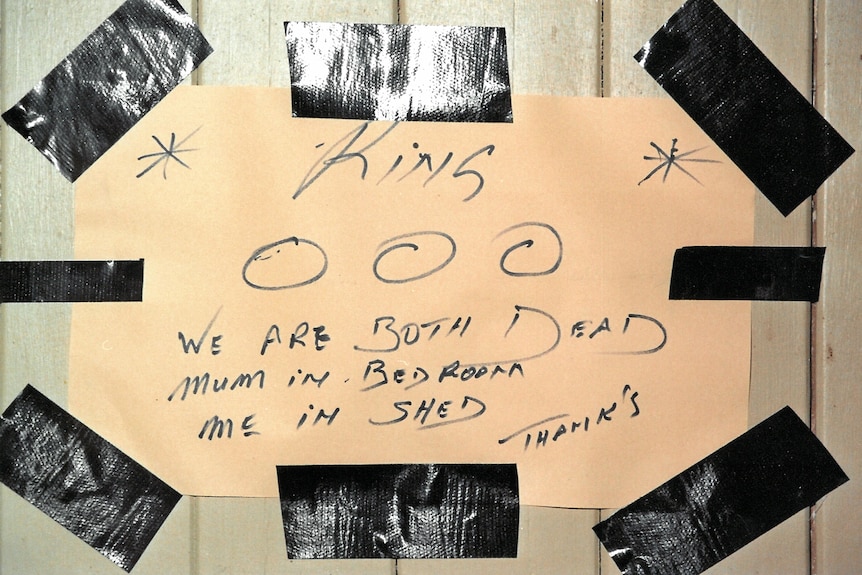 * KING *
000
WE ARE BOTH DEAD
MUM IN BEDROOM
ME IN SHED
THANK'S